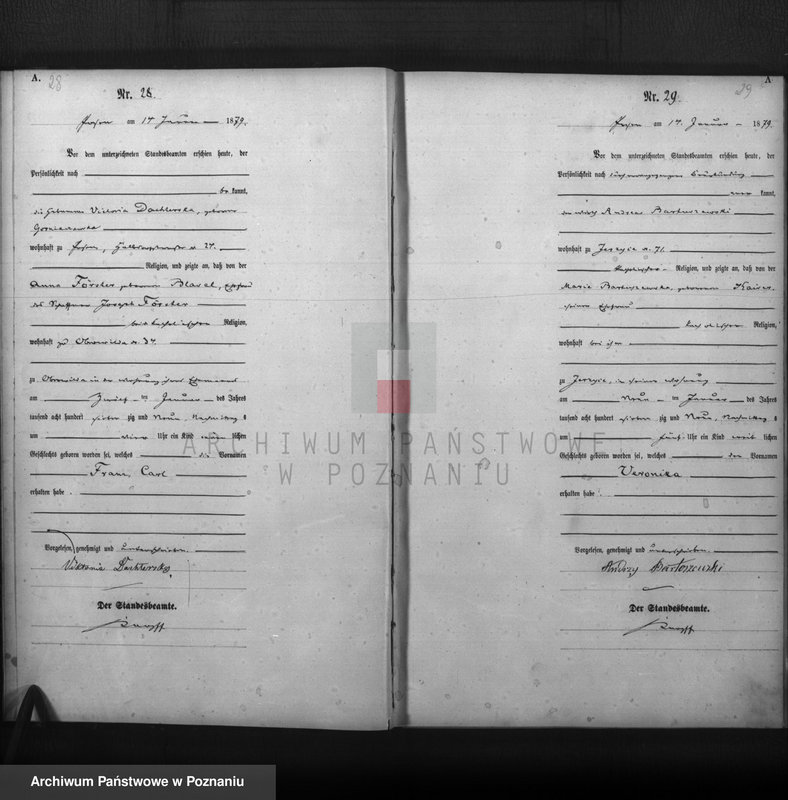 A. 28
Nr. 28.
Posen am 14 Januar 1879.
Vor dem unterzeichneten Standesbeamten erschien heute, der
Persönlichkeit nach
be kannt,
die Hebamme Victoria Dachterska, geborene
wohnhaft zu Posen, 27.
Religion, und zeigte an, daß von der
Anna Förster geborenen Blavel, Ehefrau
des Joseph Förster
beide katholischer Religion,
wohnhaft zu
zu in der Wohnung ihres Ehemanns
am in Januar des Jahres
tausend acht hundert sieben zig und Neun, Nachmittag s
um vier Uhr ein Kind männ lichen
Geschlechts geboren worden sei, welches die Vornamen
Franz, Carl
erhalten habe.
Vorgelesen, genehmigt und unterschrieben.
Viktoria Dachterska
Der Standesbeamte.
A
29
Nr. 29.
Posen am 14. Januar 1879.
Vor dem unterzeichneten Standesbeamten erschien heute, der
Persönlichkeit nach
aner kannt,
Andreas Bartuszewski
wohnhaft zu Jerzyce n. 71.
katholischer Religion, und zeigte an, daß von der
Maria Bartuszewska, geborenen Kaiser
seiner Ehefrau
katholischer Religion,
wohnhaft bei ihm
zu Jerzyce, in seiner Wohnung
am Neun in Januar des Jahres
tausend acht hundert sieben zig und Neun, Nachmittag s
um fünf Uhr ein Kind weib lichen
Geschlechts geboren worden sei, welches den Vornamen
Veronika
erhalten habe.
Vorgelesen, genehmigt und unterschrieben.
Andrzy Bartoszewski
Der Standesbeamte.
ARCHIWUM PAŃSTWOWE
W POZNANIU
Archiwum Państwowe w Poznaniu